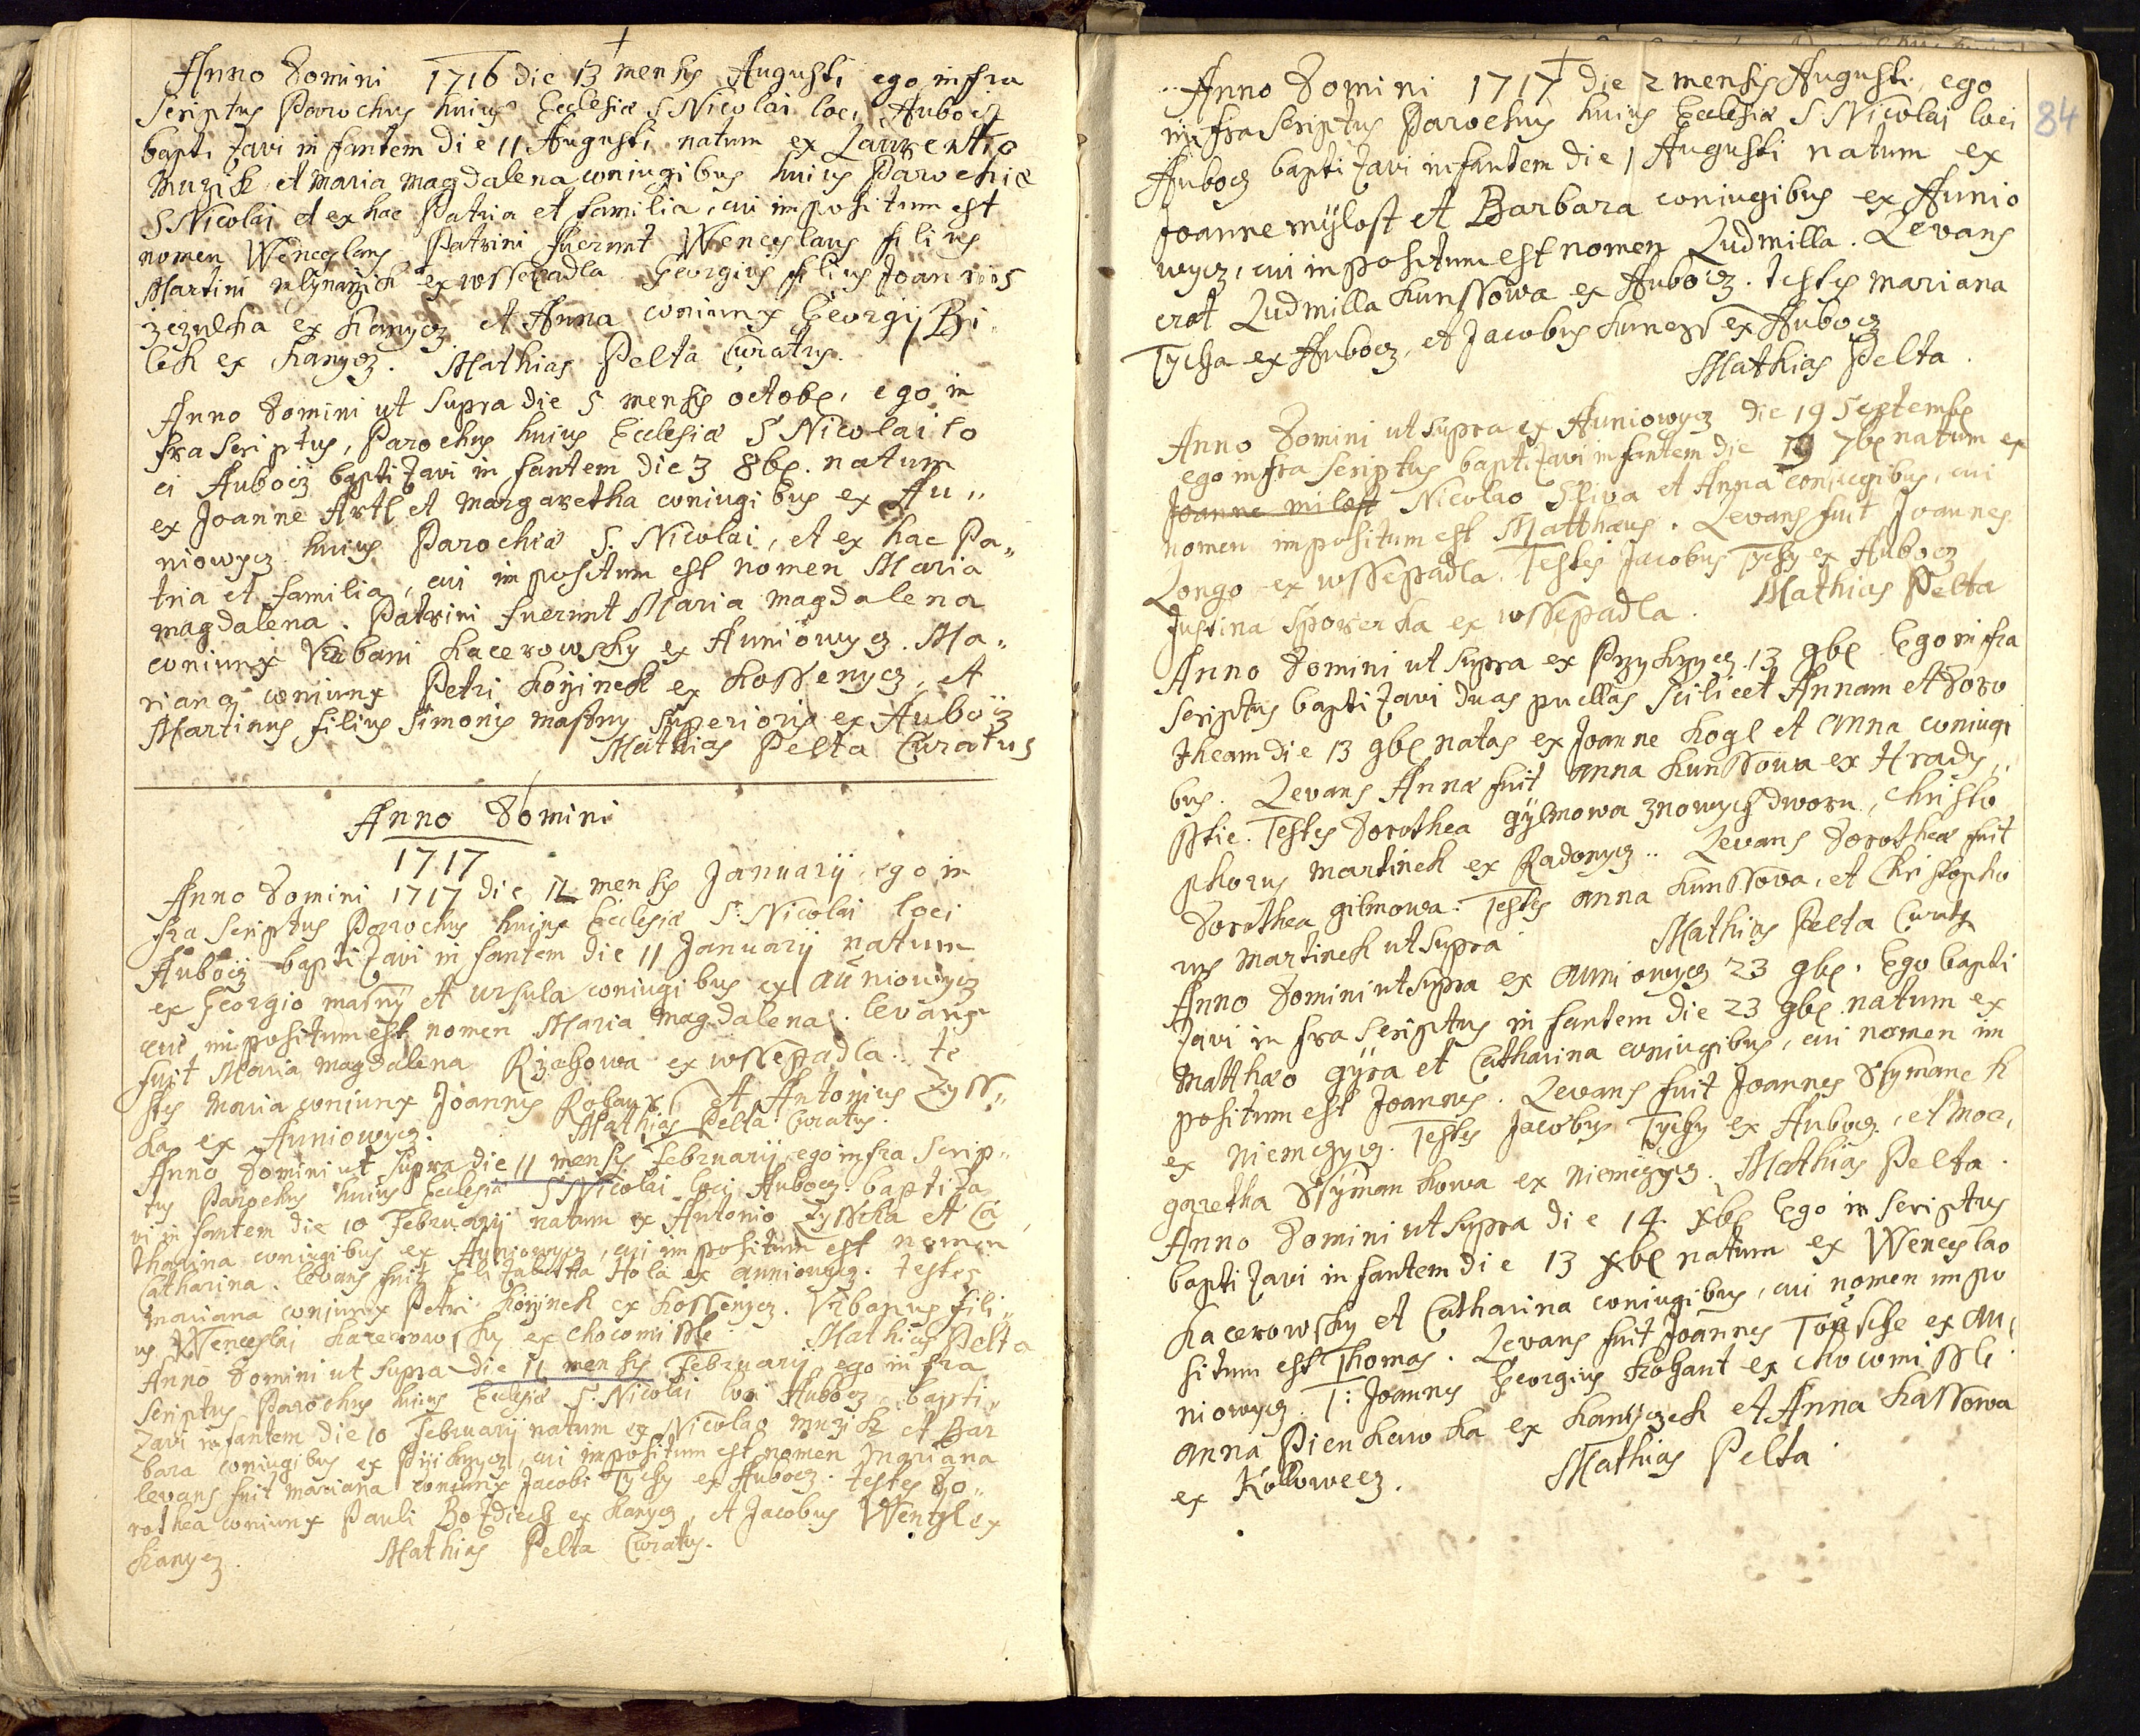 Anno Domini 1716 die 13 mensis Augusti ego infra
scriptus Parochus huius Ecclesiæ S Nicolai loci Aubocz
baptizavi infantem die 11 Augusti natum ex Laurentio
Muzik et Maria Magdalena coniugibus huius Parochiæ
S Nicolai et ex hac Patria et familia, cui impositum est
nomen Wenceslaus Patrini fuerunt Wenceslaus filius
Martini mlynarzich ex wssepadla Georgius filius Joannis
zezulka ex Kanycz et Anna coniunx Georgij Bi„
lek ex Kanycz. Mathias Pelta Curatus.
Anno Domini ut supra die 5 mensis octobr. ego in
fra scriptus, Parochus huius Ecclesiæ S Nicolai lo
ci Aubocz baptizavi infantem die 3 8br. natum
ex Joanne Artl et Margaretha coniugibus ex Au„
niowycz huius Parochiæ S. Nicolai, et ex hac Pa„
tria et familia, cui impositum est nomen Maria
Magdalena. Patrini fuerunt Maria Magdalena
coniunx Urbani Kacerowsky ex Auniowycz. Ma„
riana coniunx Petri Korzinek ex Kossenycz, et
Martinus filius Simonis mastny superioris ex Aubocz
Mathias Pelta Curatus
Anno Domini
1717
Anno Domini 1717 die 12 mensis Januarij ego in
fra scriptus Parochus huius Ecclesiæ S. Nicolai loci
Aubocz baptizavi infantem die 11 Januarij natum
ex Georgio masny et Ursula coniugibus ex auniowycz
cui impositum est nomen Maria Magdalena. levans
fuit Maria Magdalena Rzehowa ex wssepadla. te
stes Maria coniunx Joannis et Antonius Zyss„
ka ex Auniowycz. Mathias Pelta Curatus.
Anno Domini ut supra die 11 mensis Februarij ego infra scrip„
tus Parochus huius Ecclesiæ S Nicolai loci Aubocz. baptiza
vi infantem die 10 Februarij natum ex Antonio Zysska et Ca
tharina coniugibus ex Auniowycz, cui impositum est nomen
Catharina. levans fuit Elizabetha Hola ex auniowycz. testes
Mariana coniunx Petri Korzinek ex Kossenycz. Urbanus fili„
us Wenceslai Kacerowsky ex Chocomissle Mathias Pelta
Anno Domini ut supra die 11 mensis Februarij ego infra
scriptus Parochus huius Ecclesiæ S. Nicolai loci Aubocz bapti„
zavi infantem die 10 Februarij natum ex Nicolao muzik et Bar
bara coniugibus ex Przikrycz, cui impositum est nomen Mariana
levans fuit Mariana coniunx Jacobi Tychy ex Aubocz. testes Do„
rothea coniunx Pauli Bozdiech ex Kanycz, et Jacobus Wentzl ex
Kanycz. Mathias Pelta Curatus.
84
Anno Domini 1717 die 2 mensis Augusti, ego
infra scriptus Parochus huius Ecclesiæ S. Nicolai loci
Aubocz baptizavi infantem die 1 Augusti natum ex
Joanne mylost et Barbara coniugibus ex Aunio
wycz, cui impositum est nomen Ludmilla. Levans
erat Ludmilla Kunssowa ex Aubocz. testes Mariana
Tycha ex Aubocz, et Jacobus Kuness ex Aubocz
Mathias Pelta.
Anno Domini ut supra ex Auniowycz die 19 Septembr
ego infra scriptus baptizavi infantem die 19 7br natum ex
Joanne milost Nicolao Sliva et Anna coniugibus, cui
nomen impositum est Matthæus. Levans fuit Joannes
Longo ex wssepadla. Testes Jacobus Tychy ex Aubocz
Justina Sporerka ex wssepadla. Mathias Pelta
Anno Domini ut supra ex Przykrzycz 13 9br Ego infra
scriptus baptizavi duas puellas scilicet Annam et Doro
theam die 13 9br natas ex Joanne Kogl et Anna coniugi
bus. Levans Annæ fuit Anna Kunssowa ex Hrady„
sstie. Testes Dorothea gylmowa z nowych dworu, Christo
phorus Martinek ex Radonycz.. Levans Dorotheæ fuit
Dorothea gilmowa. Testes Anna Kunssova, et Christopho
rus Martinek ut supra Mathias Pelta Curatus
Anno Domini ut supra ex auniowycz 23 9br. Ego bapti
zavi infra scriptus infantem die 23 9br natum ex
Matthæo gyra et Catharina coniugibus, cui nomen im
positum est Joannes. Levans fuit Joannes Ssymanek
ex Niemczycz. Testes Jacobus Tychy ex Aubocz, et Mar„
garetha Ssymankowa ex Niemczycz. Mathias Pelta.
Anno Domini ut supra die 14 Xbr Ego in scriptus
baptizavi infantem die 13 Xbr natum ex Wenceslao
Kacerowsky et Catharina coniugibus, cui nomen impo
situm est Thomas. Levans fuit Joannes ex Au„
niowycz. T: Joannes Georgius Kohaut ex Chocomissli
Anna Pienkawka ex Kaniczek et Anna Kassowa
ex Kollowecz. Mathias Pelta